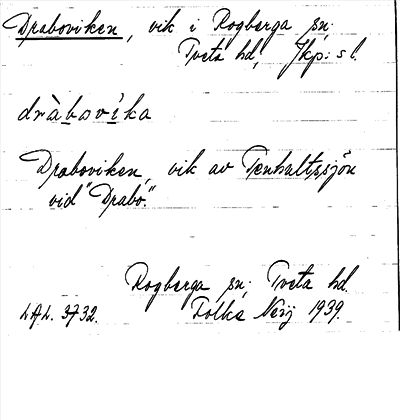 Draboviken, vik i Rogberga sn.
Tveta hd, Jkp:s l.
dràbovìka
Draboviken, vik av Tenhaltssjön
vid "Drabo."
Rogberga sn. Tveta hd.
L.A.L. 3732. Folke Neij 1939.